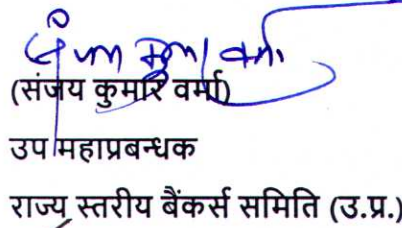 (संजय कुमार वर्मा)
उप महाप्रबन्धक
राज्य स्तरीय बैंकर्स समिति (उ.प्र.)